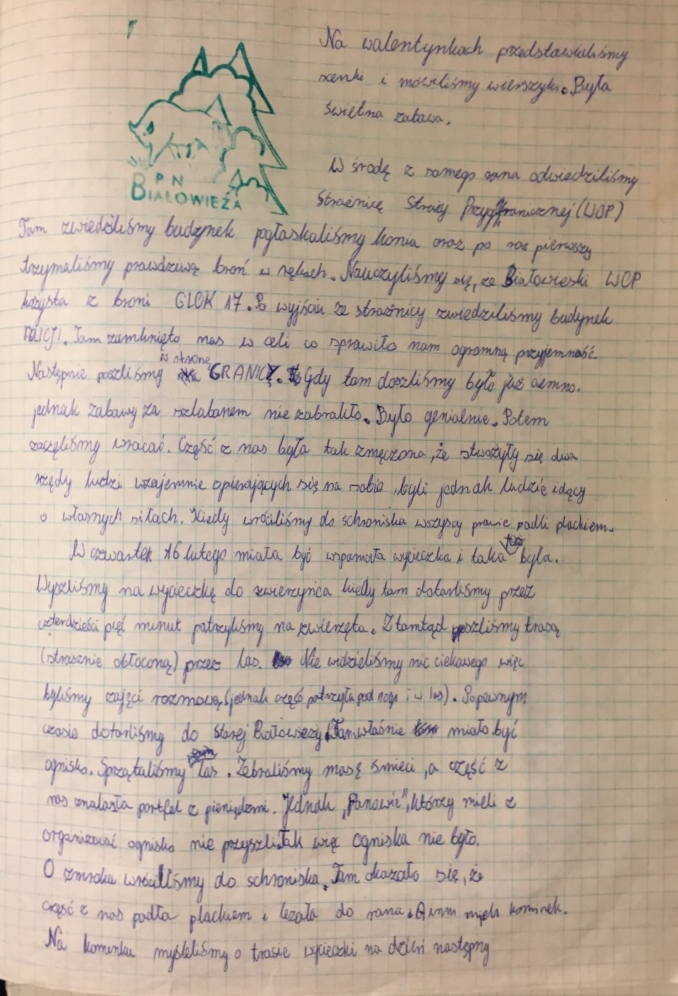 Na walentynkach przedstawialiśmy
scenki i mówiliśmy wierszyki. Była
świetna zabawa.
PN
BIAŁOWIEŻA
W środę z samego rana odwiedziliśmy
Strażnicę Straży Przygranicznej (WOP)
Tam zwiedziliśmy budynek pogłaskaliśmy konia oraz po raz pierwszy
trzymaliśmy prawdziwą broń w rękach. Nauczyliśmy się, że Białowieski WOP
kożysta z broni GLOK 17. Po wyjściu ze strażnicy zwiedziliśmy budynek
POLICJI. Tam zamknięto nas w celi co sprawiło nam ogromną przyjemność.
Następnie poszliśmy w stronę GRANICY. Gdy tam doszliśmy było już ciemno.
jednak zabawy za szlabanem nie zabrakło. Było genialnie. Potem
zaczęliśmy wracać. Część z nas była tak zmęczona, że stworzyły się dwa
rzędy ludzi wzajemnie opierających się na sobie, byli jednak ludzie idący
o własnych siłach. Kiedy wróciliśmy do schroniska wszyscy prawie padli plackiem.
W czwartek 16 lutego miała być wspaniała wycieczka i taka też była.
Wyszliśmy na wycieczkę do zwierzyńca kiedy tam dotarliśmy przez
czterdzieści pięć minut patrzyliśmy na zwierzęta. Ztamtąd poszliśmy trasą
(strasznie obłoconą) przez las. Nie widzieliśmy nic ciekawego więc
byliśmy zajęci rozmową (jednak część patrzyła pod nogi i w las). Popewnym
czasie dotarliśmy do Starej Białowieży. Tam właśnie miało być
ognisko. Sprzątaliśmy las. Zebraliśmy masę śmieci, a część z
nas znalazła portfel z pieniędzmi. Jednak "Panowie", którzy mieli z
organizować ognisko nie przyszli. Tak więc ogniska nie było.
O zmroku wróciliśmy do schroniska. Tam okazało się, że
część z nas padła plackiem i leżała do rana. A inni mieli kominek.
Na kominku myśleliśmy o trasie wycieczki na dzień następny